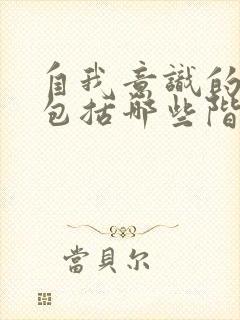 自我意識的
包括哪些階
當貝尔